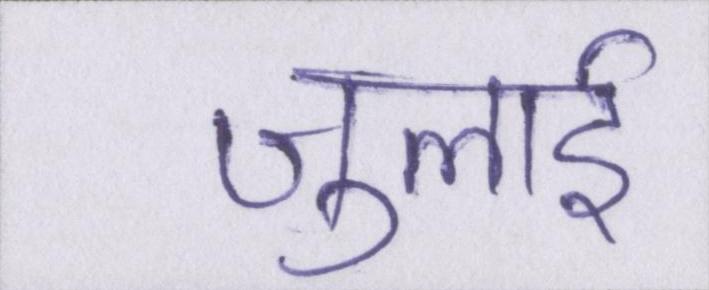 जुलाई